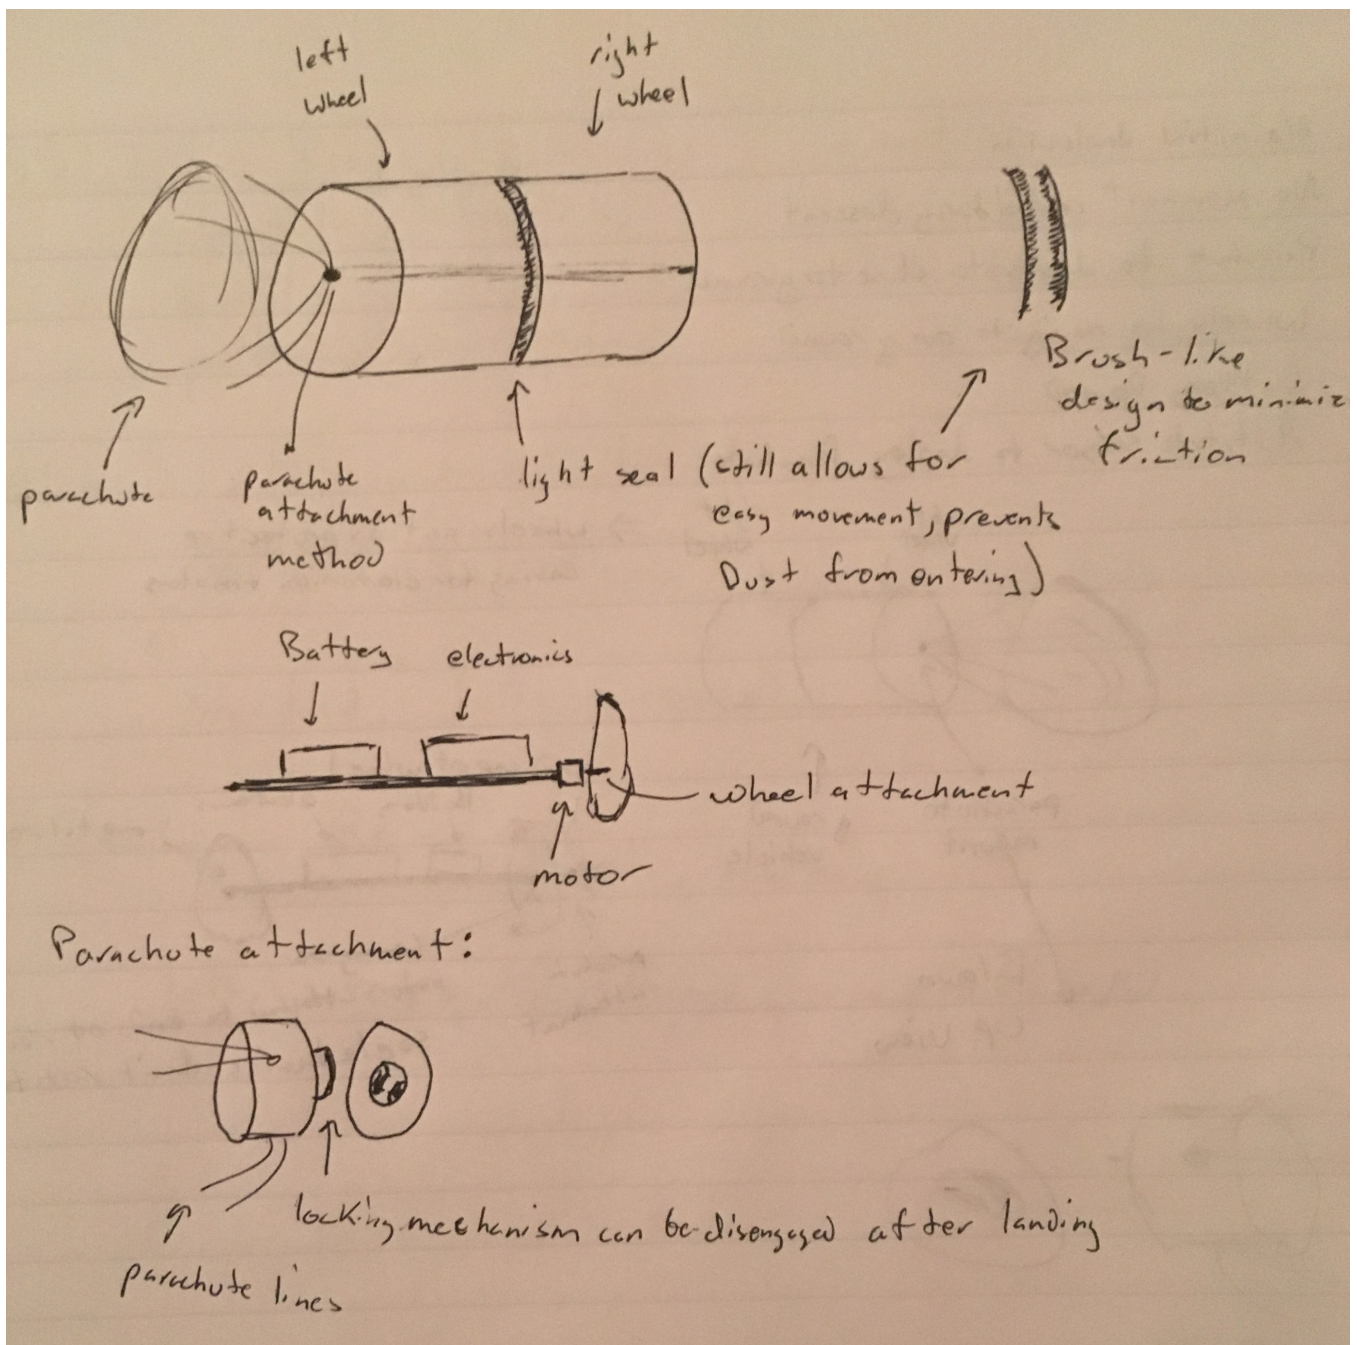 left
wheel
right
wheel
parachute
parachute
attachment
method
light seal (still allows for
easy movement, prevents
Dust from entering)
Brush-like
design to minimiz
friction
Battery
electronics
wheel attachment
motor
Parachute attachment:
locking mechanism can be disengaged after landing
parachute lines